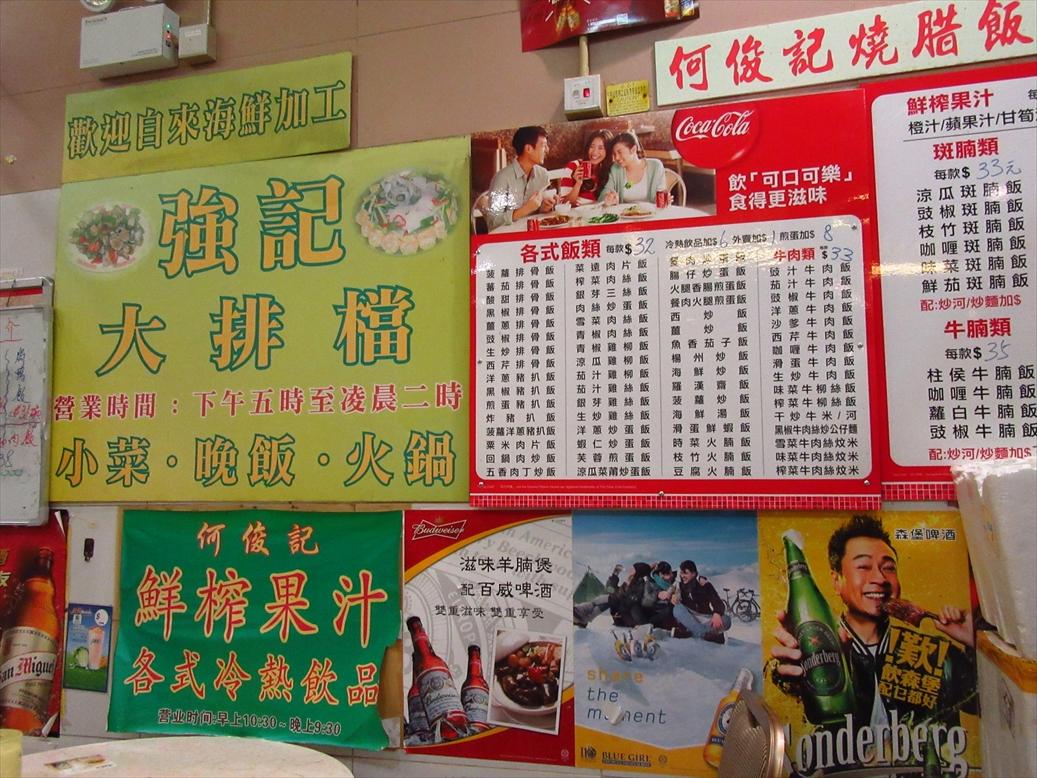 歡迎自來海鮮加工
強記
大排檔
營業時間：下午五時至凌晨二時
小菜·晚飯·火鍋
何俊記燒腊飯
Coca-Cola
飲「可口可樂」
食得更滋味
各式飯類 每款$32
冷熱飲品加$6 外賣加$1 煎蛋加$8
菠蘿排骨飯
蕃茄排骨飯
酸甜排骨飯
黑椒排骨飯
薑蔥排骨飯
豉椒排骨飯
生炒排骨飯
西芹排骨飯
洋蔥豬扒飯
黑椒豬扒飯
煎蛋豬扒飯
炸豬扒飯
菠蘿洋蔥豬扒飯
粟米肉片飯
回鍋肉炒飯
五香肉丁炒飯
菜遠肉片飯
榨菜肉片飯
銀芽三絲飯
肉絲炒蛋飯
雪菜肉絲飯
青椒肉絲飯
青椒雞柳飯
涼瓜雞柳飯
茄汁雞柳飯
茄汁雞絲飯
銀芽雞絲飯
生炒雞絲飯
洋蔥炒蛋飯
蝦仁炒蛋飯
芙蓉煎蛋飯
涼瓜菜甫炒蛋飯
腸仔炒蛋飯
火腿香腸煎蛋飯
餐肉火腿煎蛋飯
西炒飯
薑炒飯
魚香茄子飯
楊州炒飯
海鮮炒飯
羅漢齋飯
菠蘿炒飯
海鮮湯飯
滑蛋鮮蝦飯
時菜火腩飯
枝竹火腩飯
豆腐火腩飯
牛肉類 $33
豉汁牛肉飯
茄汁牛肉飯
豉椒牛肉飯
洋蔥牛肉飯
沙爹牛肉飯
西芹牛肉飯
咖喱牛肉飯
滑蛋牛肉飯
生炒牛肉飯
味菜牛柳絲飯
榨菜牛柳絲飯
干炒牛米/河
黑椒牛肉絲炒公仔麵
雪菜牛肉絲炆米
味菜牛肉絲炆米
榨菜牛肉絲炆米
鮮榨果汁
橙汁/蘋果汁/甘筍
斑腩類
每款$33元
涼瓜斑腩飯
豉椒斑腩飯
枝竹斑腩飯
咖喱斑腩飯
味菜斑腩飯
鮮茄斑腩飯
配:炒河/炒麵加$
牛腩類
每款$35
柱侯牛腩飯
咖喱牛腩飯
蘿白牛腩飯
豉椒牛腩飯
配:炒河/炒麵加$
San Miguel
何俊記
鮮榨果汁
各式冷熱飲品
营业时间:早上10:30~晚上9:30
Budweiser
滋味羊腩煲
配百威啤酒
雙重滋味 雙重享受
share
the
BLUE GIRL
森堡啤酒
歎!
飲森堡
配乜都好
Sonderberg
Sonderberg